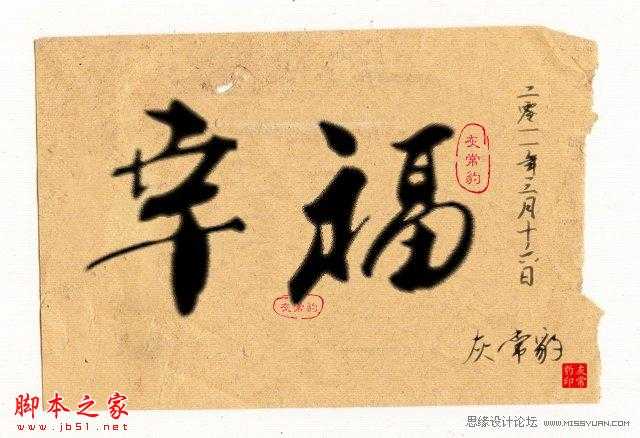 幸福
灰常豹
灰常豹
二零一一年三月十六日
灰常豹
灰常豹印
脚本之家
www.jb51.net
思缘设计论坛 WWW.MISSYUAN.COM